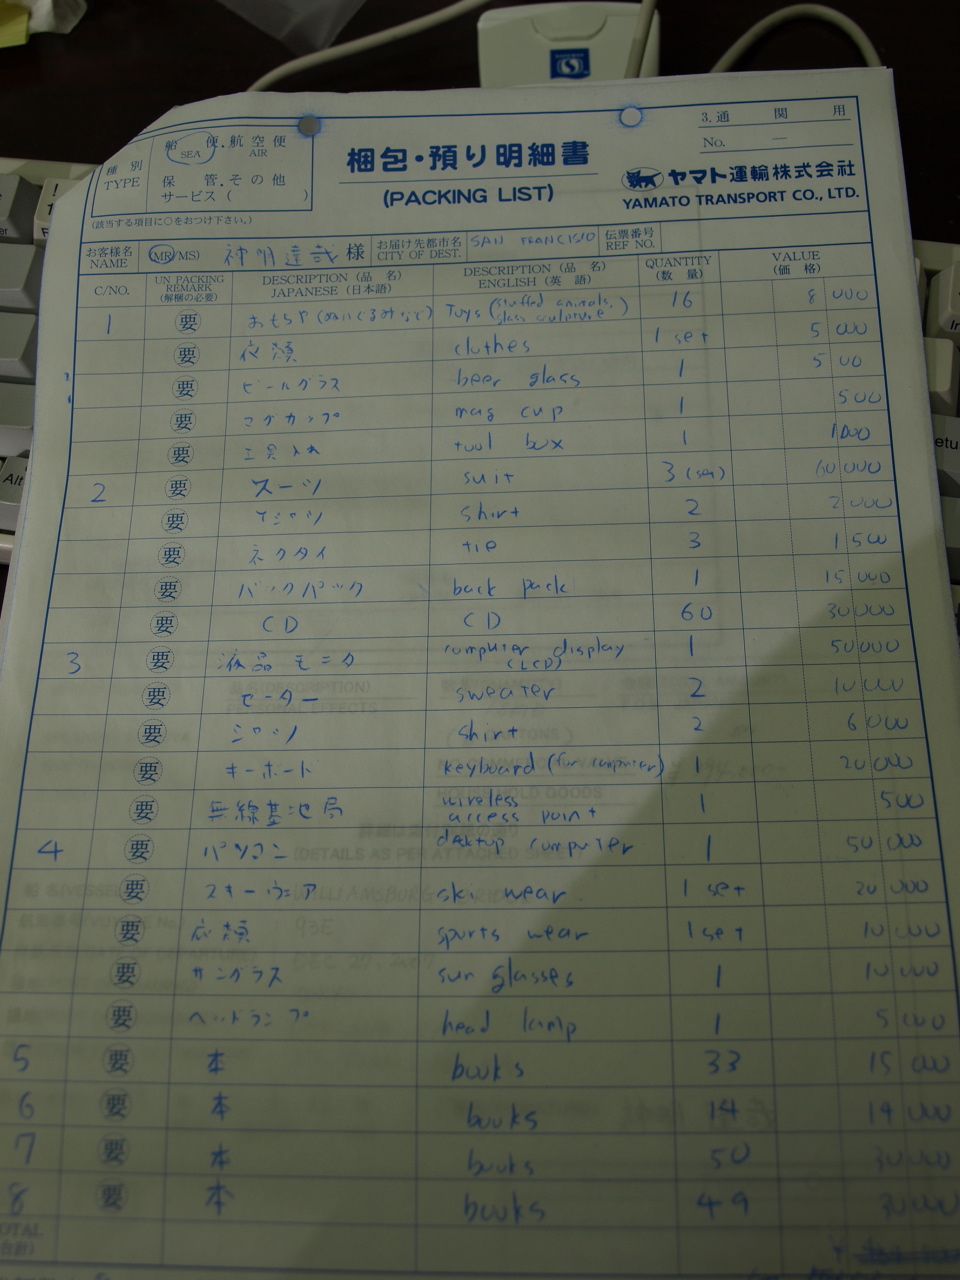 3. 通 関 用
No. —
種 別
TYPE
船 便. 航 空 便
SEA AIR
保 管. そ の 他
サービス ( )
(該当する項目に○をおつけ下さい。)
梱包・預り明細書
(PACKING LIST)
ヤマト運輸株式会社
YAMATO TRANSPORT CO., LTD.
お客様名 NAME (MR/MS) 神明達哉 様 お届け先都市名 CITY OF DEST. SAN FRANCISCO 伝票番号 REF NO.
C/NO. UN PACKING REMARK (解梱の必要) DESCRIPTION (品 名) JAPANESE (日本語) DESCRIPTION (品 名) ENGLISH (英 語) QUANTITY (数 量) VALUE (価 格)
1 要 おもちゃ (ぬいぐるみなど) Toys (stuffed animals, glass sculpture) 16 8 000
要 衣類 clothes 1 set 5 000
要 ビールグラス beer glass 1 5 00
要 マグカップ mag cup 1 500
要 工具入れ tool box 1 1000
2 要 スーツ suit 3 (set) 60 000
要 Tシャツ shirt 2 2 000
要 ネクタイ tie 3 1 500
要 バックパック back pack 1 15 000
要 CD CD 60 30 000
3 要 液晶モニタ computer display (LCD) 1 50 000
要 セーター sweater 2 10 000
要 シャツ shirt 2 6 000
要 キーボード keyboard (for computer) 1 20 000
要 無線基地局 wireless access point 1 500
4 要 パソコン desktop computer 1 50 000
要 スキーウェア ski wear 1 set 20 000
要 衣類 sports wear 1 set 10 000
要 サングラス sun glasses 1 10 000
要 ヘッドランプ head lamp 1 5 000
5 要 本 books 33 15 000
6 要 本 books 14 14 000
7 要 本 books 50 30 000
8 要 本 books 49 30 000
TOTAL
(合計)